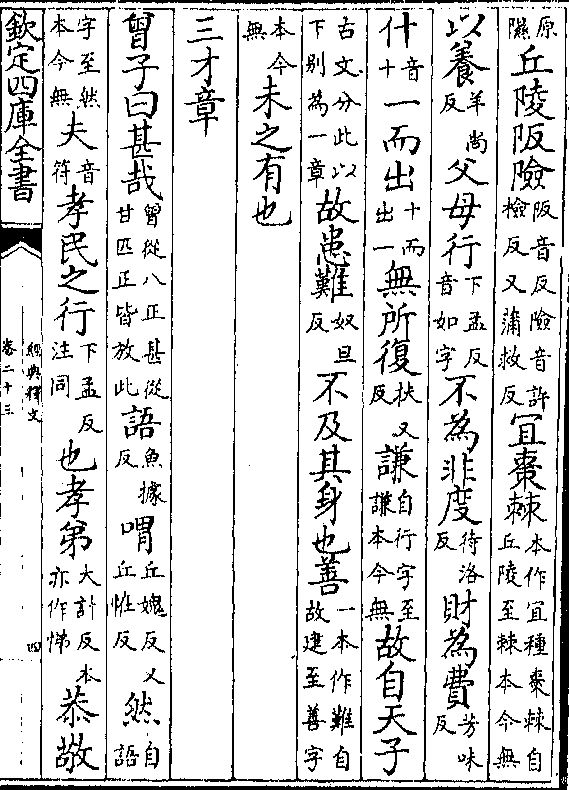 原隰丘陵阪險阪音反險音許檢反又蒲救反宜棗棘本作宜種棗棘自丘陵至棘本今無
以養羊尚反父母行下孟反音如字不為非度待洛反財為費芳味反
什音十一而出十而出一無所復扶又反謙自行字至謙本今無故自天子
古文分此以下别為一章故患難奴旦反不及其身也善一本作難自故建至善字
本今無未之有也
三才章
曾子曰甚哉曾從八正甚從甘匹正皆放此語魚據反喟丘媿反又丘惟反然自語
字至然本今無夫音符孝民之行下孟反注同也孝弟大計反本亦作悌恭敬
欽定四庫全書
經典釋文
卷二十三
四